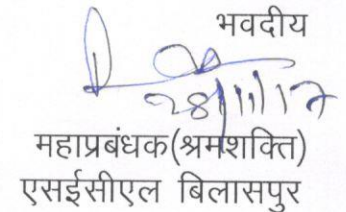 भवदीय
28/11/17
महाप्रबंधक(श्रमशक्ति)
एसईसीएल बिलासपुर